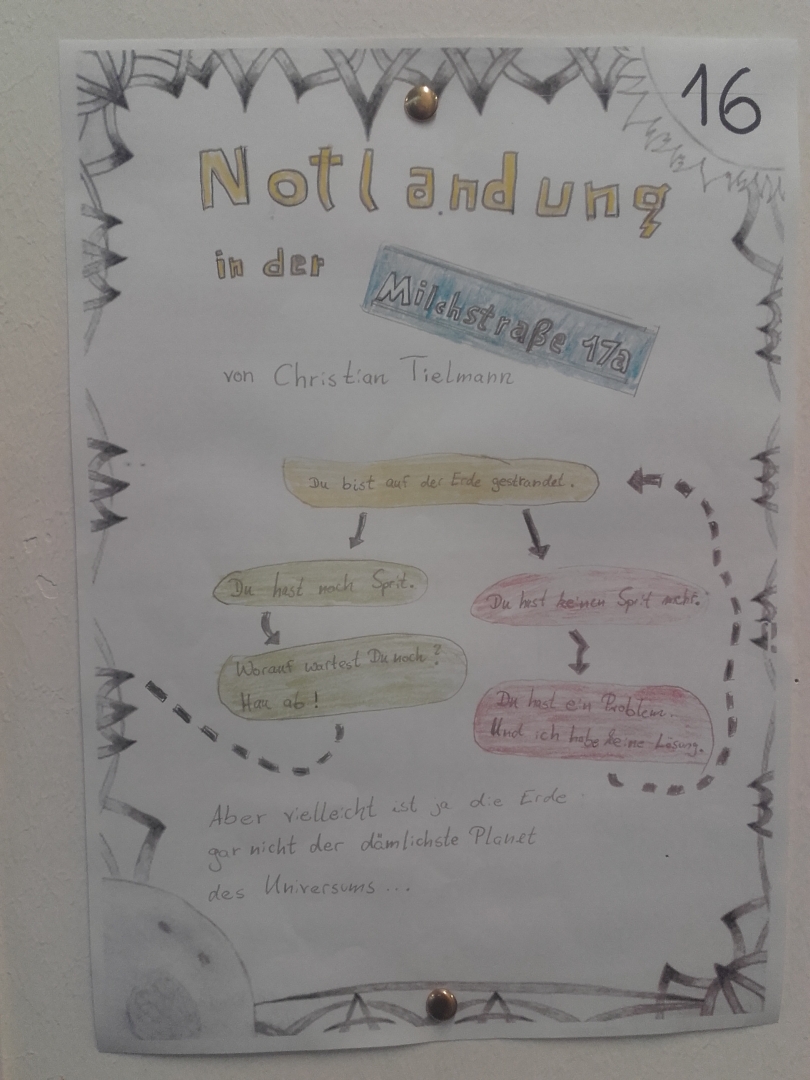 16
Notlandung
in der
Milchstraße 17a
von Christian Tielmann
Du bist auf der Erde gestrandet.
Du hast noch Sprit.
Du hast keinen Sprit mehr.
Worauf wartest Du noch?
Hau ab!
Du hast ein Problem.
Und ich habe keine Lösung.
Aber vielleicht ist ja die Erde
gar nicht der dämlichste Planet
des Universums...